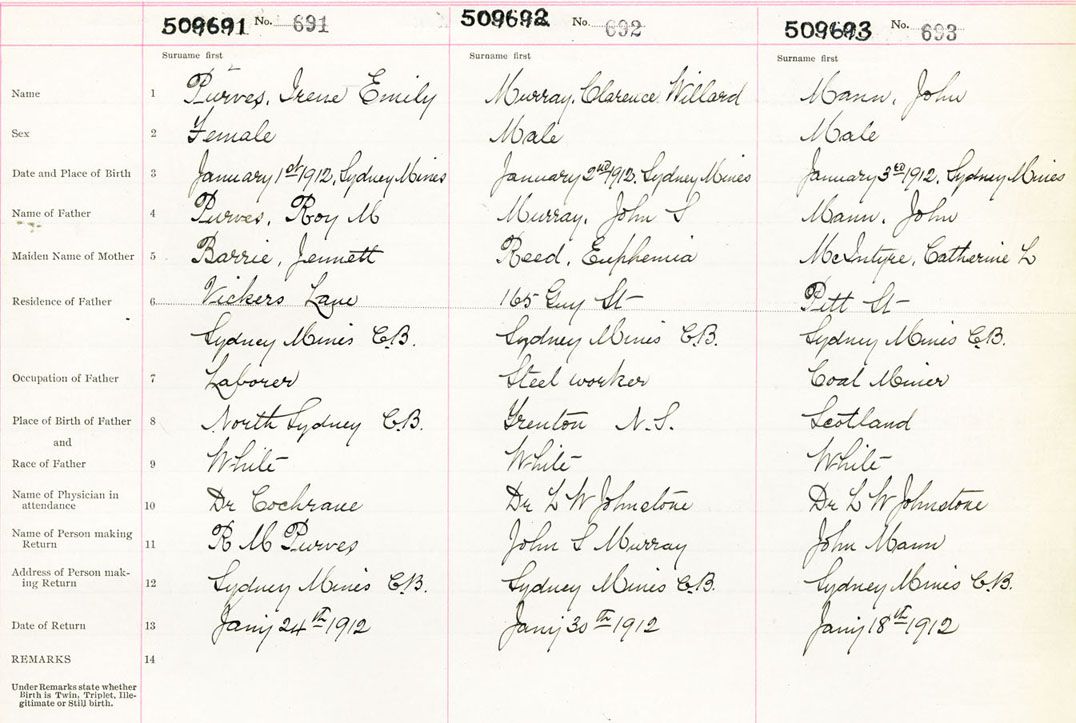 509691 No. 691 509692 No. 692 509693 No. 693
Surname first Surname first Surname first
Name 1 Purves, Irene Emily Murray, Clarence Willard Mann, John
Sex 2 Female Male Male
Date and Place of Birth 3 January 1st 1912, Sydney Mines January 2nd 1912, Sydney Mines January 3rd 1912, Sydney Mines
Name of Father 4 Purves, Roy M Murray, John S Mann, John
Maiden Name of Mother 5 Barrie, Jennett Reed, Euphemia McIntyre, Catherine L
Residence of Father 6 Vickers Lane 165 Guy St Pitt St
Sydney Mines C.B. Sydney Mines C.B. Sydney Mines C.B.
Occupation of Father 7 Laborer Steel worker Coal Miner
Place of Birth of Father 8 North Sydney C.B. Trenton N.S. Scotland
and
Race of Father 9 White White White
Name of Physician in
attendance 10 Dr Cochrane Dr L W Johnstone Dr L W Johnstone
Name of Person making
Return 11 R M Purves John S Murray John Mann
Address of Person mak-
ing Return 12 Sydney Mines C.B. Sydney Mines C.B. Sydney Mines C.B.
Date of Return 13 Jany 24th 1912 Jany 30th 1912 Jany 18th 1912
REMARKS 14
Under Remarks state whether
Birth is Twin, Triplet, Ille-
gitimate or Still birth.